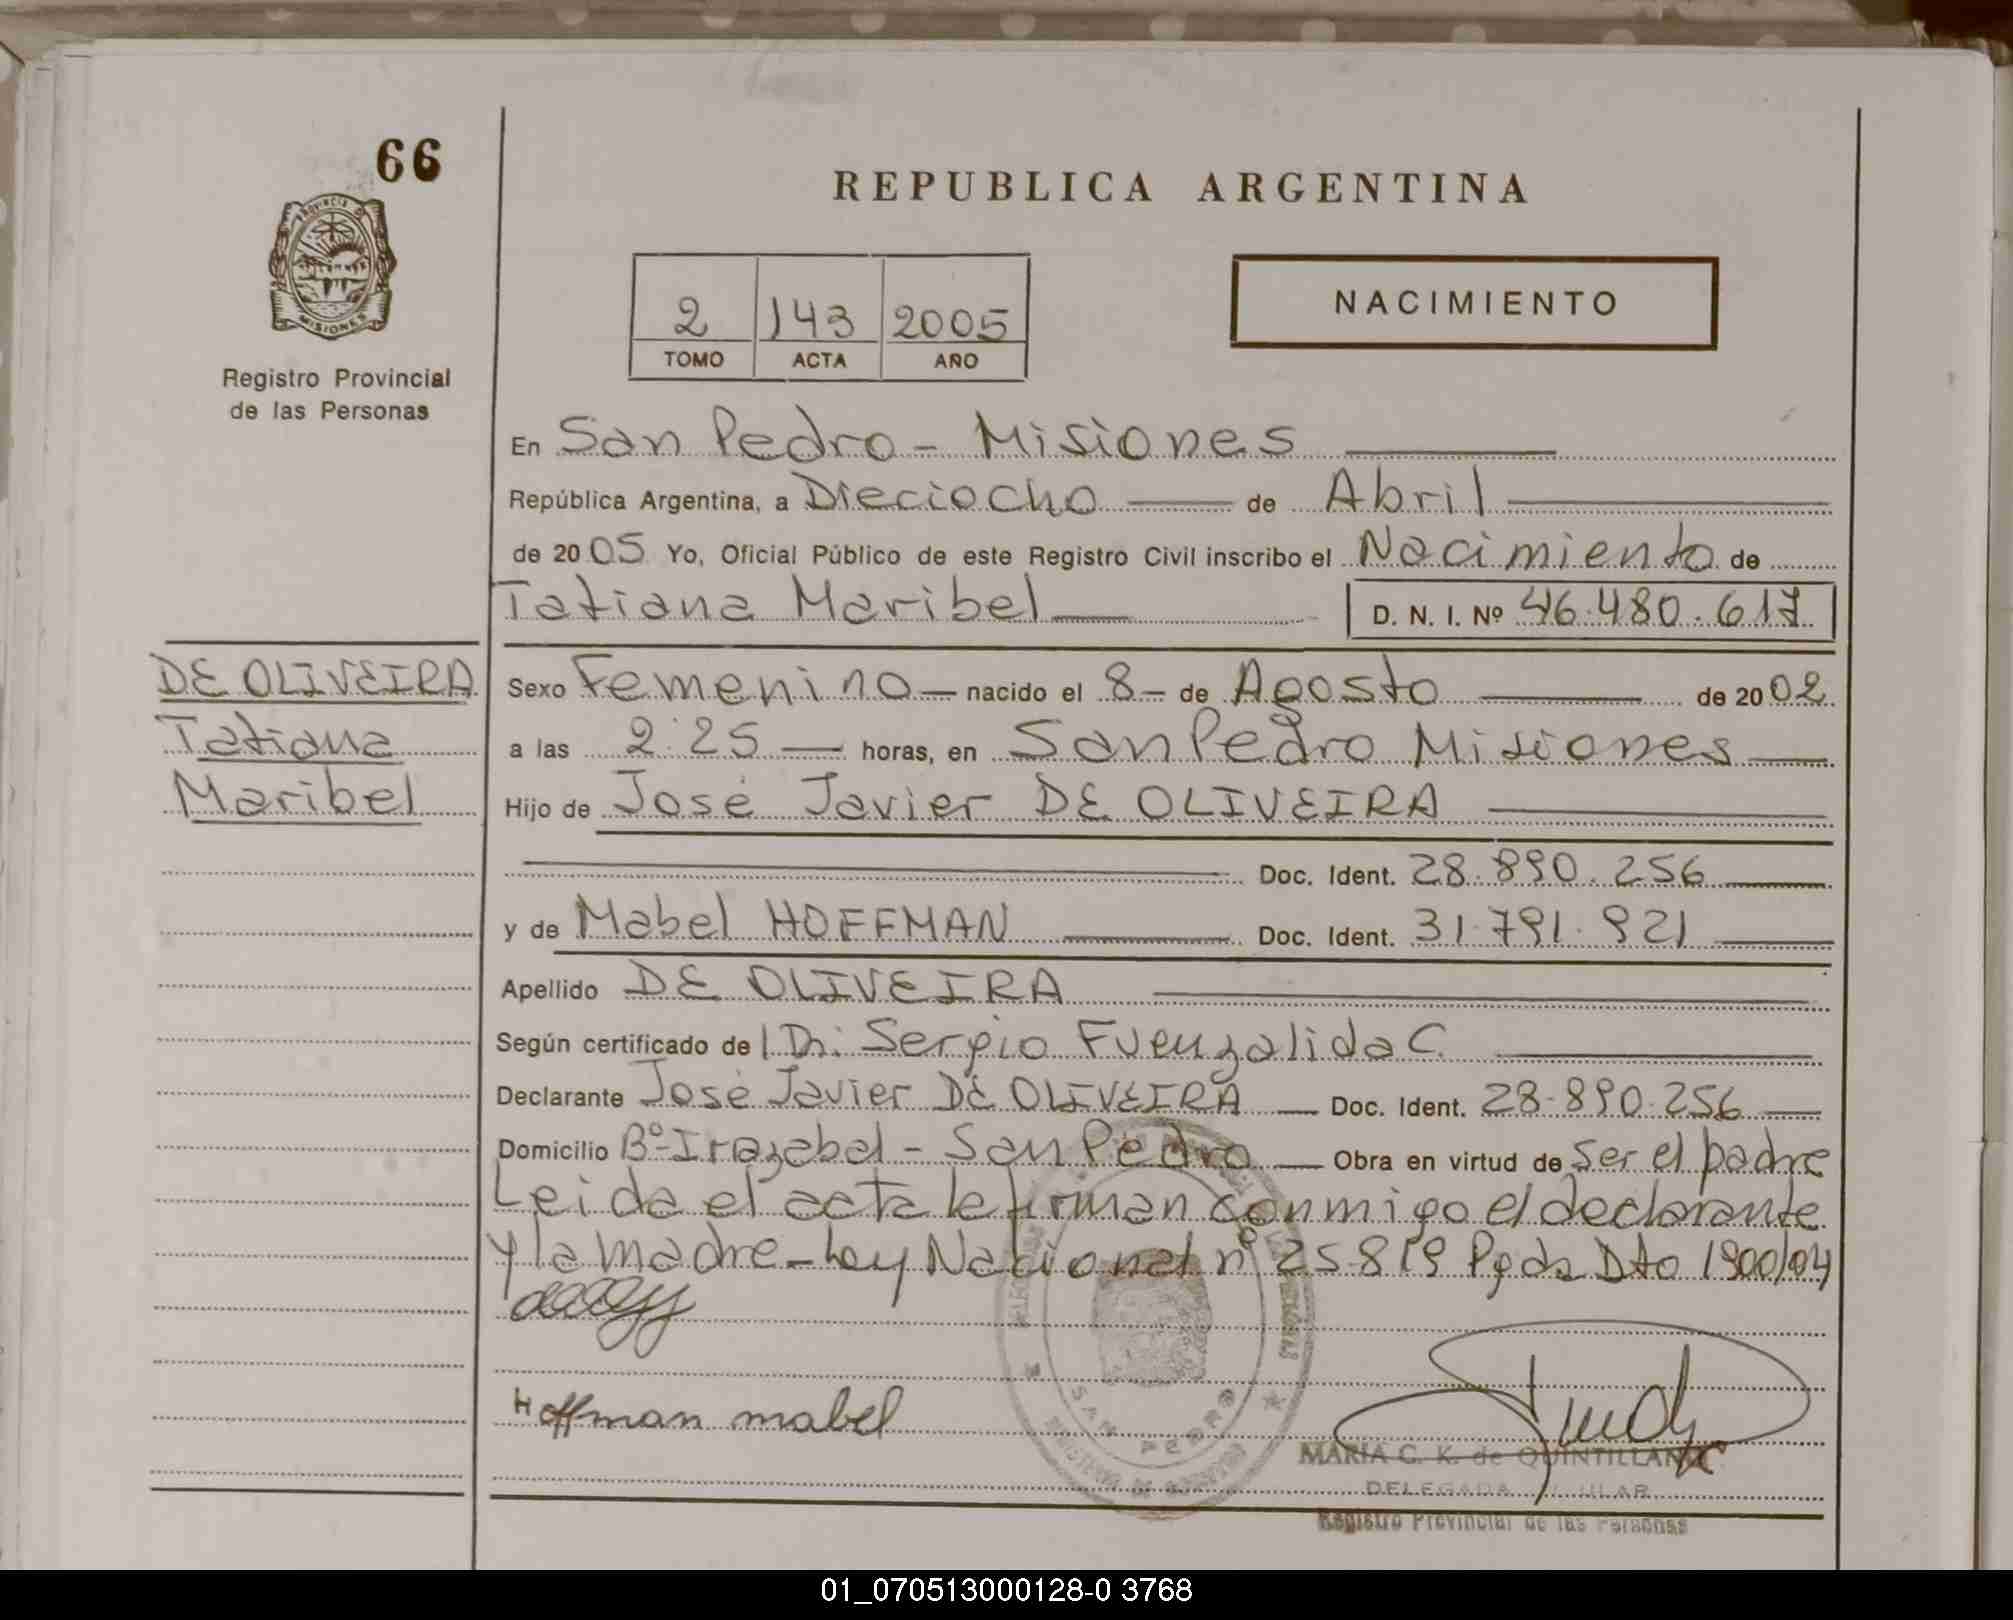 66
PROVINCIA DE
MISIONES
Registro Provincial
de las Personas
REPUBLICA ARGENTINA
2 143 2005
TOMO ACTA AÑO
NACIMIENTO
En San Pedro - Misiones
República Argentina, a Dieciocho de Abril
de 2005 Yo, Oficial Público de este Registro Civil inscribo el Nacimiento de
Tatiana Maribel D. N. I. Nº 46.480.617
DE OLIVEIRA
Tatiana
Maribel
Sexo Femenino nacido el 8 de Agosto de 2002
a las 2:25 horas, en San Pedro Misiones
Hijo de José Javier DE OLIVEIRA
Doc. Ident. 28.890.256
y de Mabel HOFFMAN Doc. Ident. 31.791.921
Apellido DE OLIVEIRA
Según certificado de Dr: Sergio Fuenzalida C.
Declarante José Javier DE OLIVEIRA Doc. Ident. 28.890.256
Domicilio Bº Irazabal - San Pedro Obra en virtud de ser el padre
Leida el acta le firman conmigo el declarante
y la madre - Ley Nacional nº 25.819 Pgda Dto 1900/04
Hoffman mabel
SAN PEDRO
MARIA C. K. de QUINTILLAN
DELEGADA TITULAR
Registro Provincial de las Personas
01_070513000128-0 3768